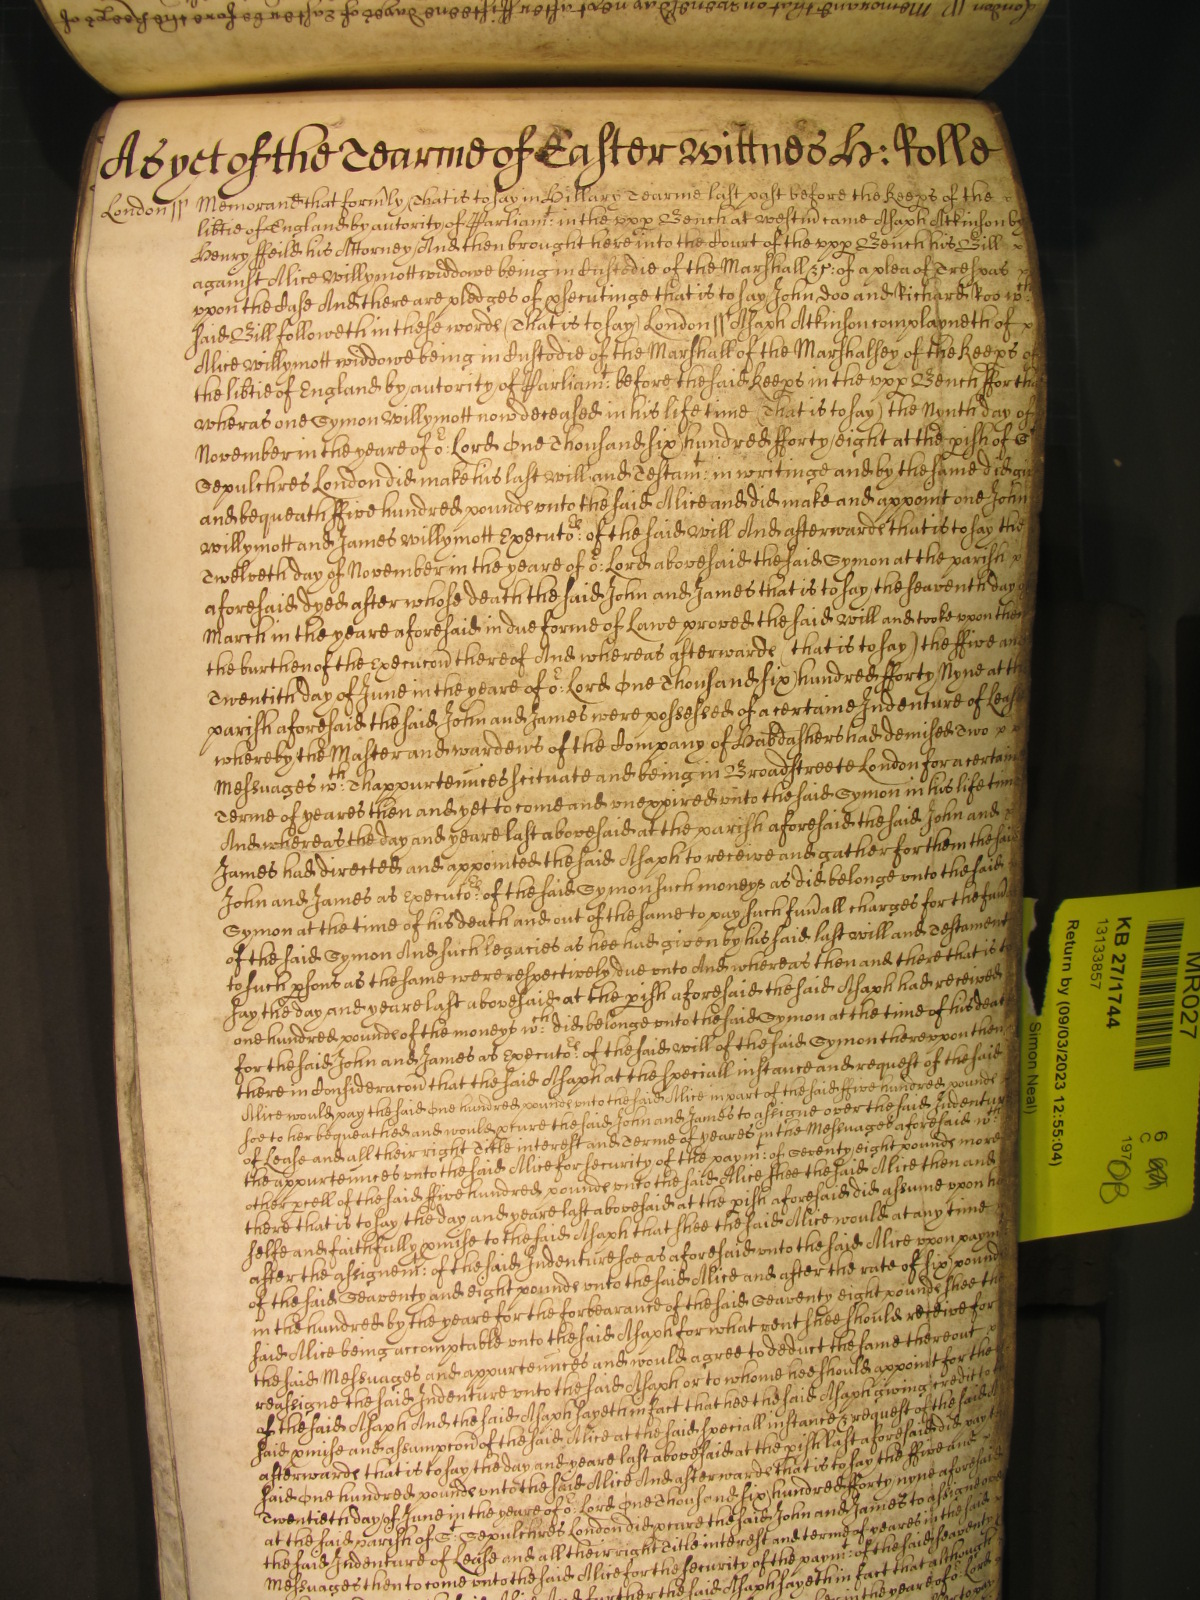 As yet of the Tearme of Easter Wittnes H: Rolle
London ss Memorand that formly (That is to say in Hillary Tearme last past before the Keeps of the
libtie of England by autority of Parliamt: in the upp Bench at Westm came Asaph Atkinson by
Henry ffeild his Attorney And then brought here into the Court of the upp Bench his Bill
against Alice Willymott widdowe being in Custodie of the Marshall &c: of a plea of Trespas
uppon the Case And there are pledges of psecutinge that is to say John Doo and Richard Roo wch
said Bill followeth in these words (That is to say) London ss Asaph Atkinson complayneth of
Alice Willymott widdowe being in Custodie of the Marshall of the Marshalsey of the Keeps of
the libtie of England by autority of Parliamt: before the said Keeps in the upp Bench ffor tha
wheras one Symon Willymott now deceased in his life time (That is to say) the Nynth day of
November in the yeare of or: Lord One Thousand six hundred fforty eight at the pish of St
Sepulchres London did make his last will and Testamt: in writinge and by the same did
and bequeath ffive hundred pounds unto the said Alice and did make and appoint one John
Willymott and James Willymott Executors: of the said Will And afterwards that is to say the
Twelveth day of November in the yeare of or: Lord abovesaid the said Symon at the parish
aforesaid dyed after whose death the said John and James that is to say the seaventh day
March in the yeare aforesaid in due forme of Lawe proved the said Will and tooke upon them
the burthen of the Execucon thereof And whereas afterwards (that is to say) the ffive and
Twentith day of June in the yeare of or: Lord One Thousand six hundred fforty Nyne at the
parish aforesaid the said John and James were possessed of a certaine Indenture of Lease
whereby the Master and wardens of the Company of Habdashers had demised Two
Messuages wth: Thappurtennces scituate and being in Broadstreete London for a certaine
Terme of yeares then and yet to come and unexpired unto the said Symon in his life time
And whereas the day and yeare last abovesaid at the parish aforesaid the said John and
James had directed and appointed the said Asaph to receive and gather for them the said
John and James as Executors: of the said Symon such moneys as did belonge unto the said
Symon at the time of his death and out of the same to pay such funall charges for the funall
of the said Symon And such legacies as hee had given by his said last Will and Testament
to such psons as the same were respectively due unto And whereas then and there that is to
say the day and yeare last abovesaid at the pish aforesaid the said Asaph had received
one hundred pounds of the moneys wch: did belonge unto the said Symon at the time of his death
for the said John and James as Executors: of the said Will of the said Symon thereupon then
there in Consideracon that the said Asaph at the speciall instance and request of the said
Alice would pay the said One hundred pounds unto the said Alice in part of the said ffive hundred pounds
soe to her bequeathed and would pcure the said John and James to assigne over the said Indenture
of Lease and all their right Title interest and Terme of yeares in the Messuages aforesaid wth:
the appurtennces unto the said Alice for security of the paymt: of Seventy eight pounds more
other pcell of the said ffive hundred pounds unto the said Alice shee the said Alice then and
there that is to say the day and yeare last abovesaid at the pish aforesaid did assume upon her
selfe and faithfully pmise to the said Asaph that shee the said Alice would at any time
after the assignemt: of the said Indenture soe as aforesaid unto the said Alice upon paymt
of the said Seaventy and eight pounds unto the said Alice and after the rate of six pounds
in the hundred by the yeare for the forbearance of the said Seaventy eight pounds shee the
said Alice being accomptable unto the said Asaph for what rent shee should receive for
the said Messuages and appurtennces and would agree to deduct the same thereout
reassigne the said Indenture unto the said Asaph or to whome hee should appoint for the
of the said Asaph And the said Asaph sayeth in fact that hee the said Asaph giving credit to
said pmise and assumpcon of the said Alice at the said speciall instance & request of the said
afterwards that is to say the day and yeare last abovesaid at the pish last aforesaid did pay
said One hundred pounds unto the said Alice And afterwards that is to say the ffive and
Twentieth day of June in the yeare of or: Lord One Thousand six hundred fforty nyne aforesaid
at the said parish of St: Sepulchres London did pcure the said John and James to assigne over
the said Indenture of Lease and all their right Title interest and terme of yeares in the said
Messuages then to come unto the said Alice for the security of the paymt: of the said seaventy
further the said Asaph sayeth in fact that although
in the yeare of or: Lord
MR027
KB 27/1744
13133857
Return by (09/03/2023 12:55:04)
Simon Neal)
6
C
197